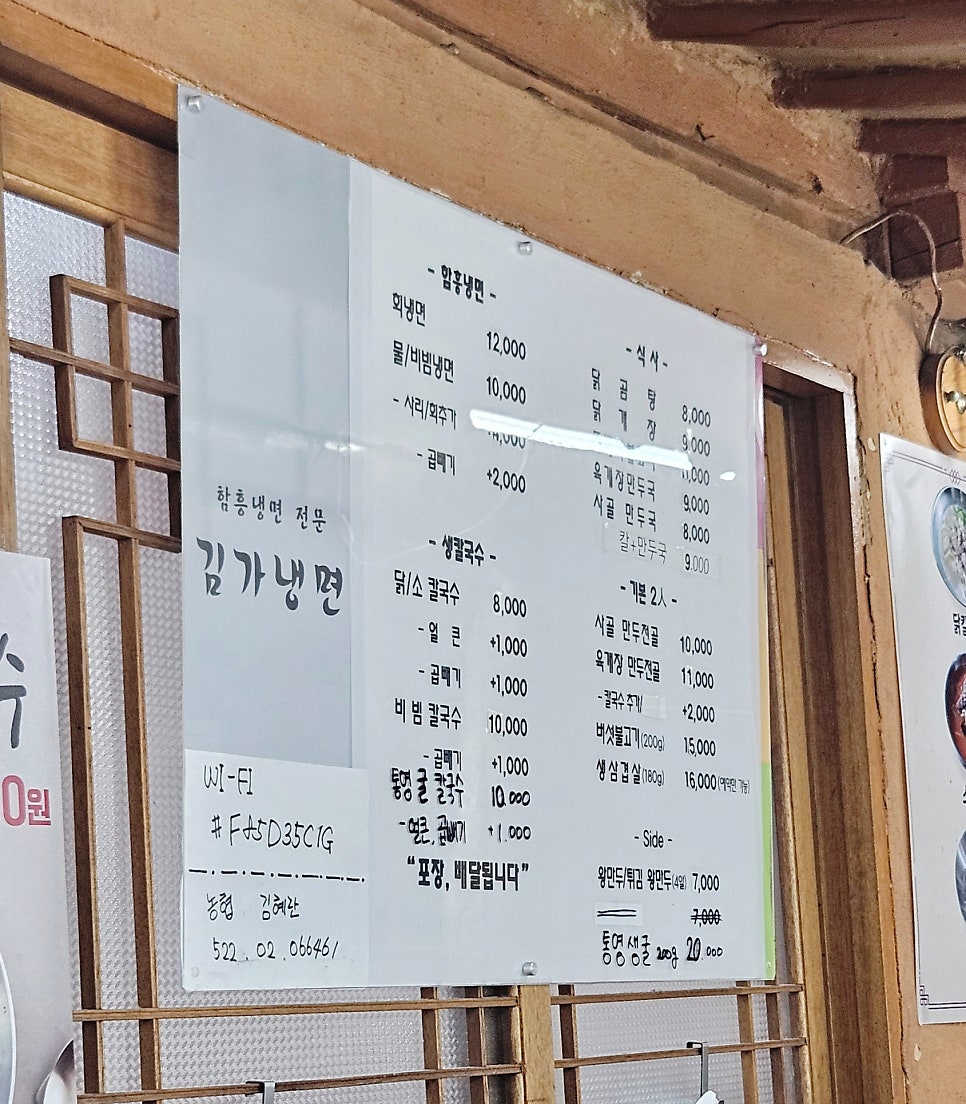 함흥냉면 전문
김가냉면
WI-FI
#F85D35C1G
농협 김혜란
522.02.066461
- 함흥냉면 -
회냉면 12,000
물/비빔냉면 10,000
- 사리/회추가
- 곱빼기 +2,000
- 생칼국수 -
닭/소 칼국수 8,000
- 얼 큰 +1,000
- 곱빼기 +1,000
비 빔 칼국수 10,000
- 곱빼기 +1,000
통영 굴 칼국수 10.000
- 얼큰, 곱빼기 +1.000
"포장, 배달됩니다"
- 식 사 -
닭 곰 탕 8,000
닭 개 장 9,000
육개장만두국 9,000
사골 만두국 8,000
칼+만두국 9.000
- 기본 2人 -
사골 만두전골 10,000
육개장 만두전골 11,000
- 칼국수 추가/ +2,000
버섯불고기(200g) 15,000
생삼겹살(180g) 16,000(예약만 가능)
- Side -
왕만두/튀김 왕만두(4알) 7,000
7,000
통영생굴 200g 20.000
수
0원